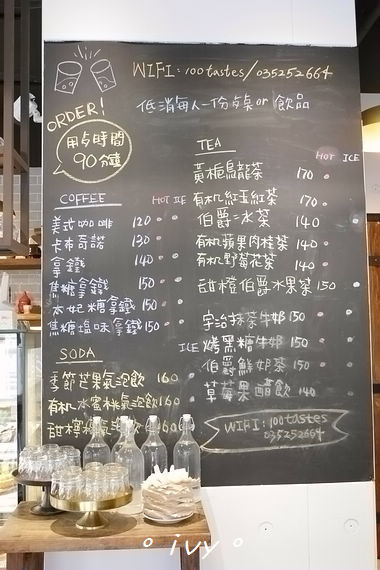 WIFI: 100tastes / 035252664
低消每人一份餐桌or飲品
ORDER!
用餐時間
90分鐘
COFFEE
HOT ICE
美式咖啡 120
卡布奇諾 130
拿鐵 140
焦糖拿鐵 150
太妃糖拿鐵 150
焦糖塩味拿鐵 150
SODA
ICE
季節芒果氣泡飲 160
有机水蜜桃氣泡飲 160
甜檸檬氣泡飲 160
TEA
HOT ICE
黃梔烏龍茶 170
有机紅玉紅茶 170
伯爵=水茶 140
有机蘋果肉桂茶 140
有机野莓花茶 140
甜橙伯爵水果茶 150
宇治抹茶牛奶 150
烤黑糖牛奶 150
伯爵鮮奶茶 150
草莓果醋飲 140
WIFI: 100tastes
035252664
ivy